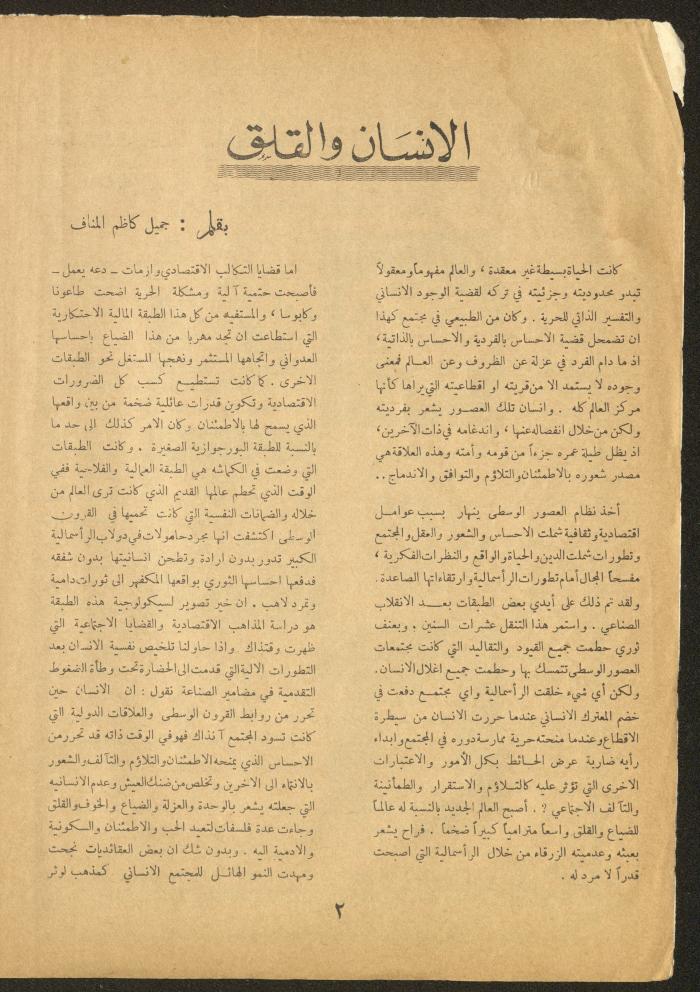 الانسان والقلق
بقلم : جميل كاظم المناف
كانت الحياة بسيطة غير معقدة ، والعالم مفهوماً ومعقولاً
تبدو محدوديته وجزئيته في تركه لقضية الوجود الانساني
والتفسير الذاتي للحرية . وكان من الطبيعي في مجتمع كهذا
ان تضمحل قضية الاحساس بالفردية والاحساس بالذاتية ،
اذ ما دام الفرد في عزلة عن الظروف وعن العـالم فمعنى
وجوده لا يستمد الا من قريته او اقطاعيته التي يراها كأنها
مركز العالم كله . وانسان تلك العصـور يشعر بفرديته
ولكن من خلال انفصاله عنها ، واندغامه في ذات الآخرين ،
اذ يظل طيلة عمره جزءاً من قومه وأمته وهذه العلاقة هي
مصدر شعوره بالاطمئنان والتلاؤم والتوافق والاندماج . .
أخذ نظام العصور الوسطى ينهار بسبب عوامـل
اقتصادية وثقافية شملت الاحساس والشعور والعقل والمجتمع
وتطورات شملت الدين والحياة والواقع والنظرات الفكرية ،
مفسحاً المجال أمام تطورات الرأسمالية وارتقاءاتها الصاعدة .
ولقد تم ذلك على أيدي بعض الطبقات بعـد الانقلاب
الصناعي . واستمر هذا التنقل عشرات السنين . وبعنف
ثوري حطمت جميع القيود والتقاليد التي كانت مجتمعات
العصور الوسطى تتمسك بها وحطمت جميع اغلال الانسان .
ولكن أي شيء خلقت الرأسمالية واي مجتمـع دفعت في
خضم المعترك الانساني عندما حررت الانسان من سيطرة
الاقطاع وعندما منحته حرية ممارسة دوره في المجتمع وابداء
رأيه ضاربة عرض الحـائط بكل الأمور والاعتبارات
الاخرى التي تؤثر عليه كالتـلاؤم والاستقرار والطمأنينة
والتآلف الاجتماعي ? . أصبح العالم الجديد بالنسبة له عالماً
للضياع والقلق واسعاً مترامياً كبيراً ضخماً . فراح يشعر
بعبثه وعدميته الزرقاء من خلال الرأسمالية التي اصبحت
قدراً لا مرد له .
اما قضايا التكالب الاقتصادي وازمات – دعه يعمل –
فأصبحت حتمية آلية ومشكلة الحرية اضحت طاعونا
وكابوسا ، والمستفيد من كل هذا الطبقة المالية الاحتكارية
التي استطاعت ان تجد مهربا من هذا الضياع باحساسها
العدواني واتجاهها المستثمر ونهجها المستغل نحو الطبقات
الاخرى . كما كانت تستطيـع كسب كل الضرورات
الاقتصادية وتكوين قدرات عائلية ضخمة من بين واقعها
الذي يسمح لها بالاطمئنان وكان الامر كذلك الى حد ما
بالنسبة للطبقة البورجوازية الصغيرة . وكانت الطبقات
التي وضعت في الكماشه هي الطبقة العمالية والفلاحية ففي
الوقت الذي تحطم عالمها القديم الذي كانت ترى العالم من
خلاله والضمانات النفسية التي كانت تحميها في القرون
الوسطى اكتشفت انها مجرد حامولات في دولاب الرأسمالية
الكبير تدور بدون ارادة وتطحن انسانيتها بدون شفقه
فدفعها احساسها الثوري بواقعها المكفهر الى ثورات دامية
وتمرد لاهب . ان خير تصوير لسيكولوجية هذه الطبقة
هو دراسة المذاهب الاقتصادية والقضايا الاجتماعية التي
ظهرت وقتذاك واذا حاولنا تلخيص نفسية الانسان بعد
التطورات الالية التي قدمت الى الحضارة تحت وطأة الضغوط
التقدمية في مضامير الصناعة نقول : ان الانسان حين
تحرر من روابط القرون الوسطى والعلاقات الدولية التي
كانت تسود المجتمع آنذاك فهو في الوقت ذاته قد تحرر من
الاحساس الذي يمنحه الاطمئنان والتلاؤم والتآلف والشعور
بالانتماء الى الاخرين وتخلص من ضنك العيش وعدم الانسانيه
التي جعلته يشعر بالوحدة والعزلة والضياع والخوف والقلق
وجاءت عدة فلسفات لتعيد الحب والاطمئنان والسكونية
والادمية اليه . وبدون شك ان بعض العقائديات نجحت
ومهدت النمو الهائـل للمجتمع الانساني كمذهب لوثر
٢